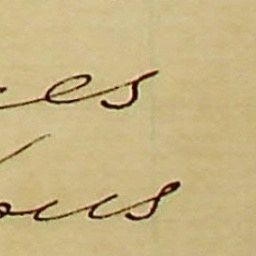 es
ous